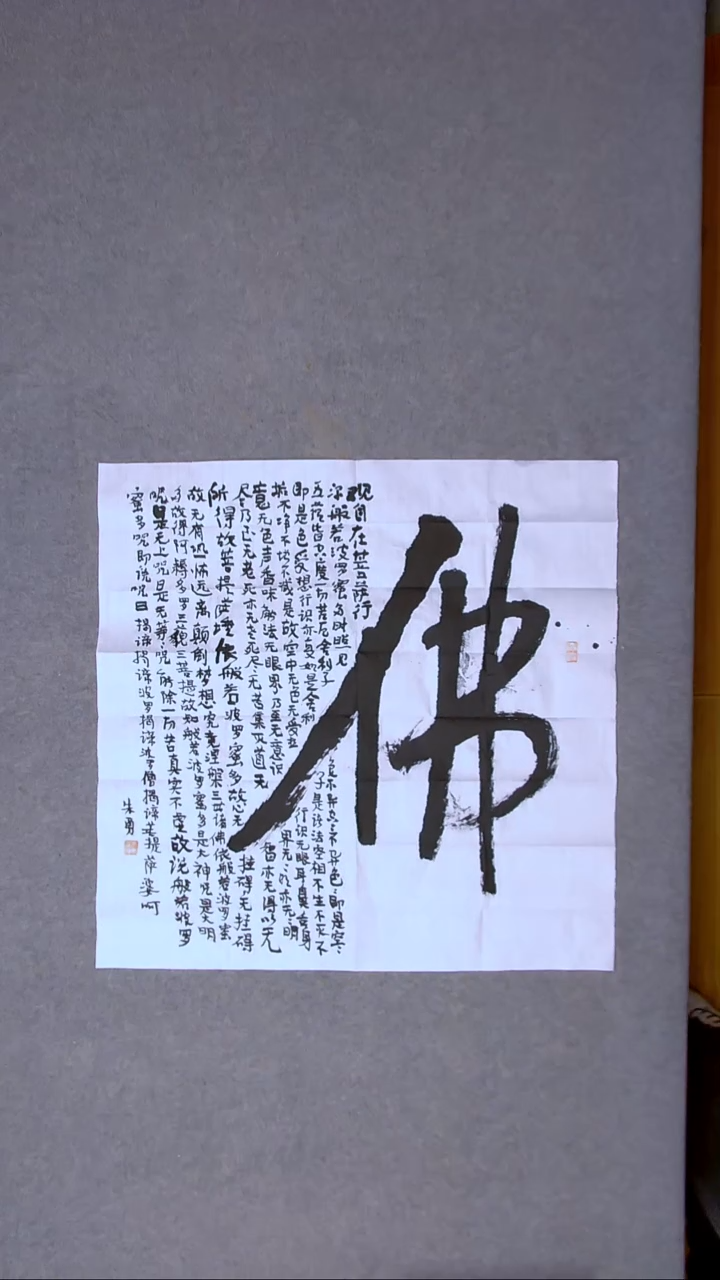 佛
观自在菩萨行
深般若波罗蜜多时照见
五蕴皆空度一切苦厄舍利子
色不异空空不异色色即是空空
即是色受想行识亦复如是舍利
子是诸法空相不生不灭不
垢不净不增不减是故空中无色无受想
行识无眼耳鼻舌身
意无色声香味触法无眼界乃至无意识
界无无明亦无无明
尽乃至无老死亦无老死尽无苦集灭道无
智亦无得以无
所得故菩提萨埵依般若波罗蜜多故心无
挂碍无挂碍
故无有恐怖远离颠倒梦想究竟涅槃三世诸佛依般若波罗蜜
多故得阿耨多罗三藐三菩提故知般若波罗蜜多是大神咒是大明
咒是无上咒是无等等咒能除一切苦真实不虚故说般若波罗
蜜多咒即说咒曰揭谛揭谛波罗揭谛波罗僧揭谛菩提萨婆诃
朱勇